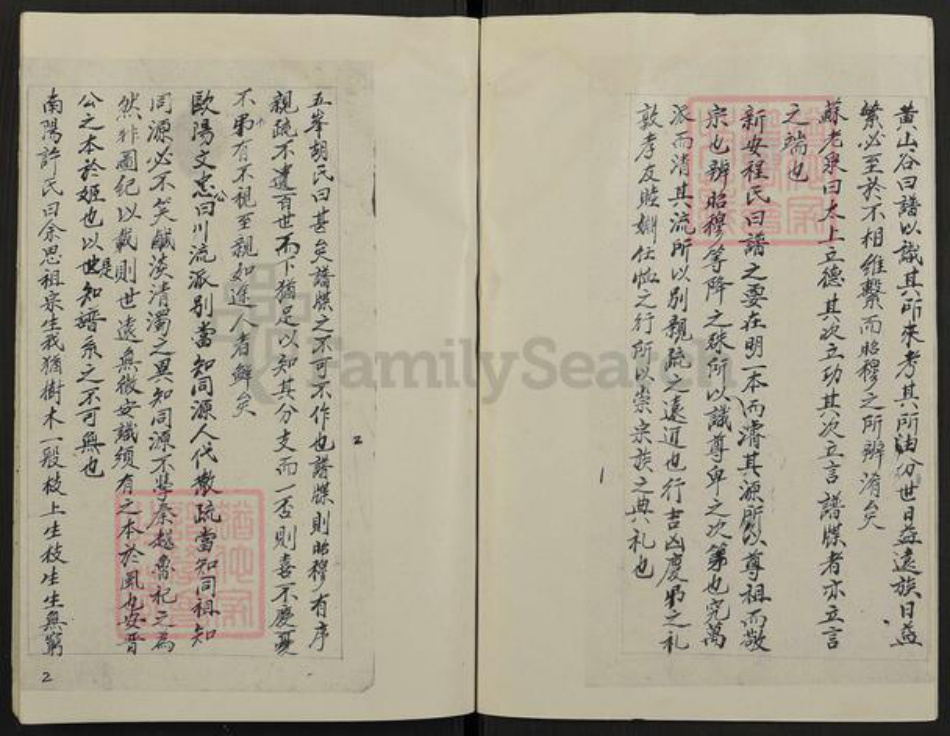 黄山谷曰譜以識其所來考其所由分世日益遠族日益
繁必至於不相維繫而昭穆之所辨淆矣
蘇老泉曰太上立德其次立功其次立言譜牒者亦立言
之端也
新安程氏曰譜之要在明一本而濬其源所以尊祖而敬
宗也辨昭穆等降之殊所以識尊卑之次第也究萬
派而清其流所以別親疏之遠近也行吉凶慶弔之礼
敦孝友睦婣任恤之行所以崇宗族之典礼也
1
五峯胡氏曰甚矣譜牒之不可不作也譜牒則昭穆有序
親疏不遺百世而下猶足以知其分支而一否則喜不慶憂
不弔有不視至親如途人者鮮矣
歐陽文忠公曰川流派別當知同源人代散疏當知同祖知
同源必不笑鹹淡清濁之異知同源不學秦越魯杞之為
然非圖紀以載則世遠無徵安識須有之本於風也安晋
公之本於姬也以是世知譜系之不可無也
南陽許氏曰余思祖宗生我猶樹木一般枝上生枝生生無窮
2
2
FamilySearch